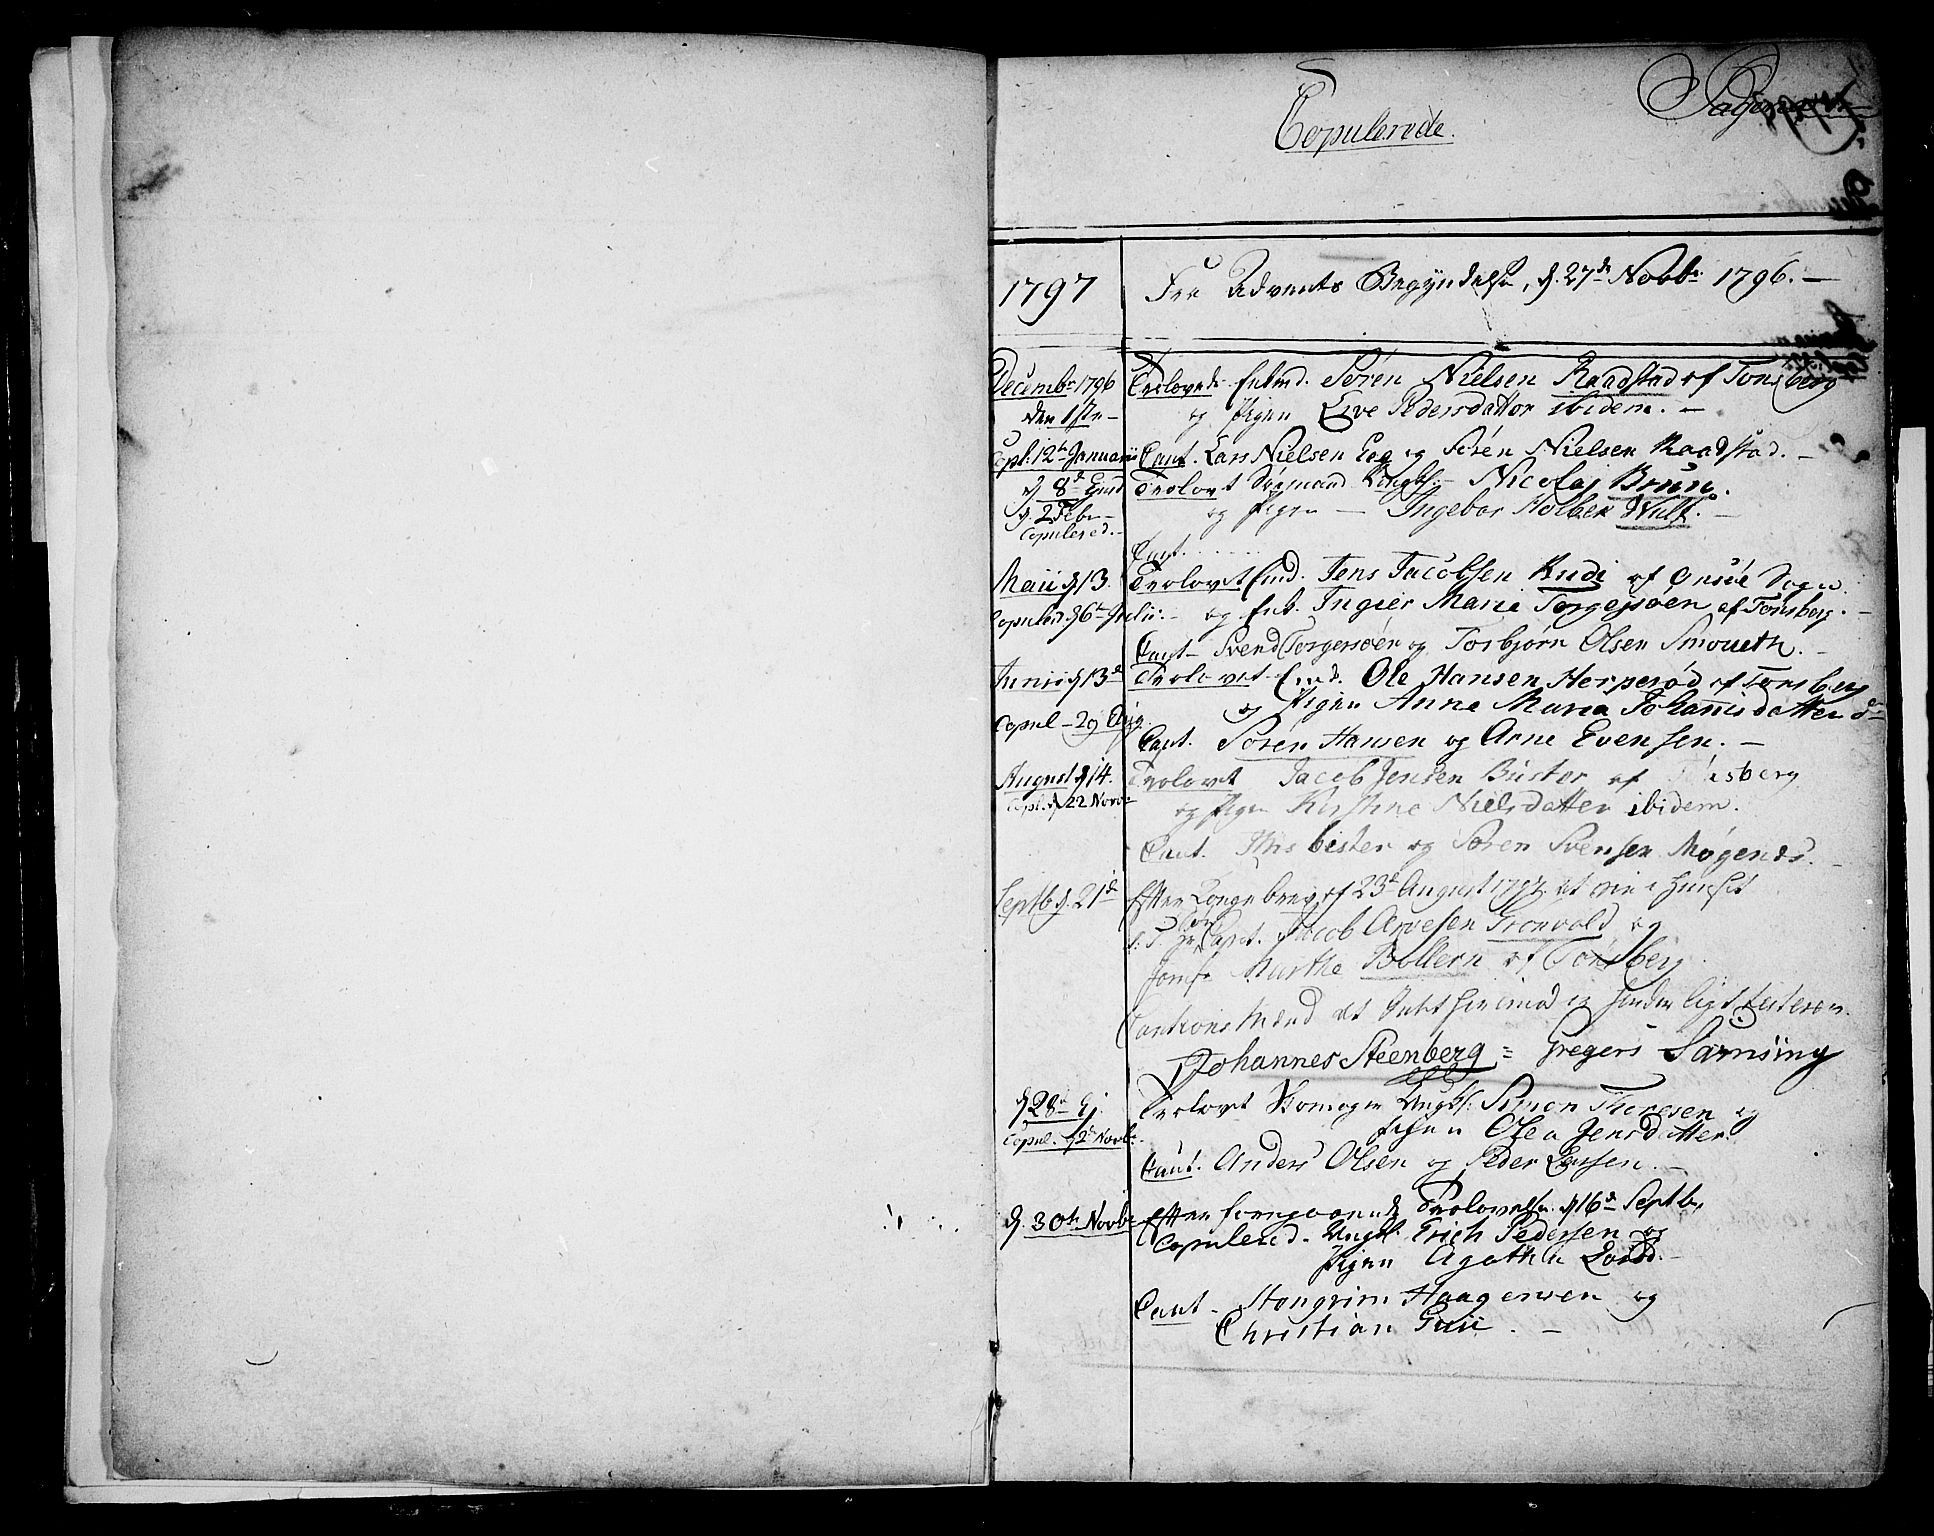 Copulerede.
1797
Fra Advents Begyndelse, d. 27de Novbr 1796. —
Decembr 1796
den 1ste —
Trolovede Enkmd. Sören Nielsen Raadstad af Tonsberg
og Pigen Live Pedersdatter ibidem. —
Copl: 12te Januarii
Caut. Lars Nielsen Eeg og Sören Nielsen Raadstad. —
d. 8de
Trolovet Nicolaj Brun.
d. 2 Febr —
Copulered. —
og Pigen — Ingebor Holbek Wulf. —
Caut.
Maii d 13.
Trolovet Emd. Jens Jacobsen Rudi af Onsöe Sogn
Copulered d 6te Julii: —
og Enk. Ingier Maria Torgersöen af Tonsberg. —
Caut — Svend Torgersöen og Torbjörn Olsen Smoueth. —
Junii d 13de
Trolovet Emd. Ole Hansen Herperöd af Tonsberg
Copul — 29 Aug.
og Pigen Anne Maria Johannisdatter
Caut. Sören Hansen og Arne Evensen. —
August d 14.
Trolovet Jacob Jensen Buster af Tonsberg
Copl. d 22 Novbr
og Pigen Kirstine Nielsdatter ibidem.
Caut. bister og Sören Svensen Mogenes. —
Septb d. 21de
Efter Kongebrev af 23de August 1797 at vie i Huuset
S: T. Hr Capt. Jacob Arvesen Gronvold og
Jomfr Marthe Bollern af Tonsberg.
Cautions Mænd at Intet herimod er hinderligt
Johannes Steenberg = Gregers Samsing
d 28de Ej.
Trolovet Ungk: Simon Thoresen og
Copul. d 2de Novbr.
Pigen Olea Jensdatter.
Caut. Anders Olsen og Peder Larsen. —
d. 30te Novbr
Efter foregaaende Trolovelse d 16de Septbr
Copulered. Ungk. Erich Pedersen og
Pigen Agathe
Caut — Stengrim Haagensen og
Christian —